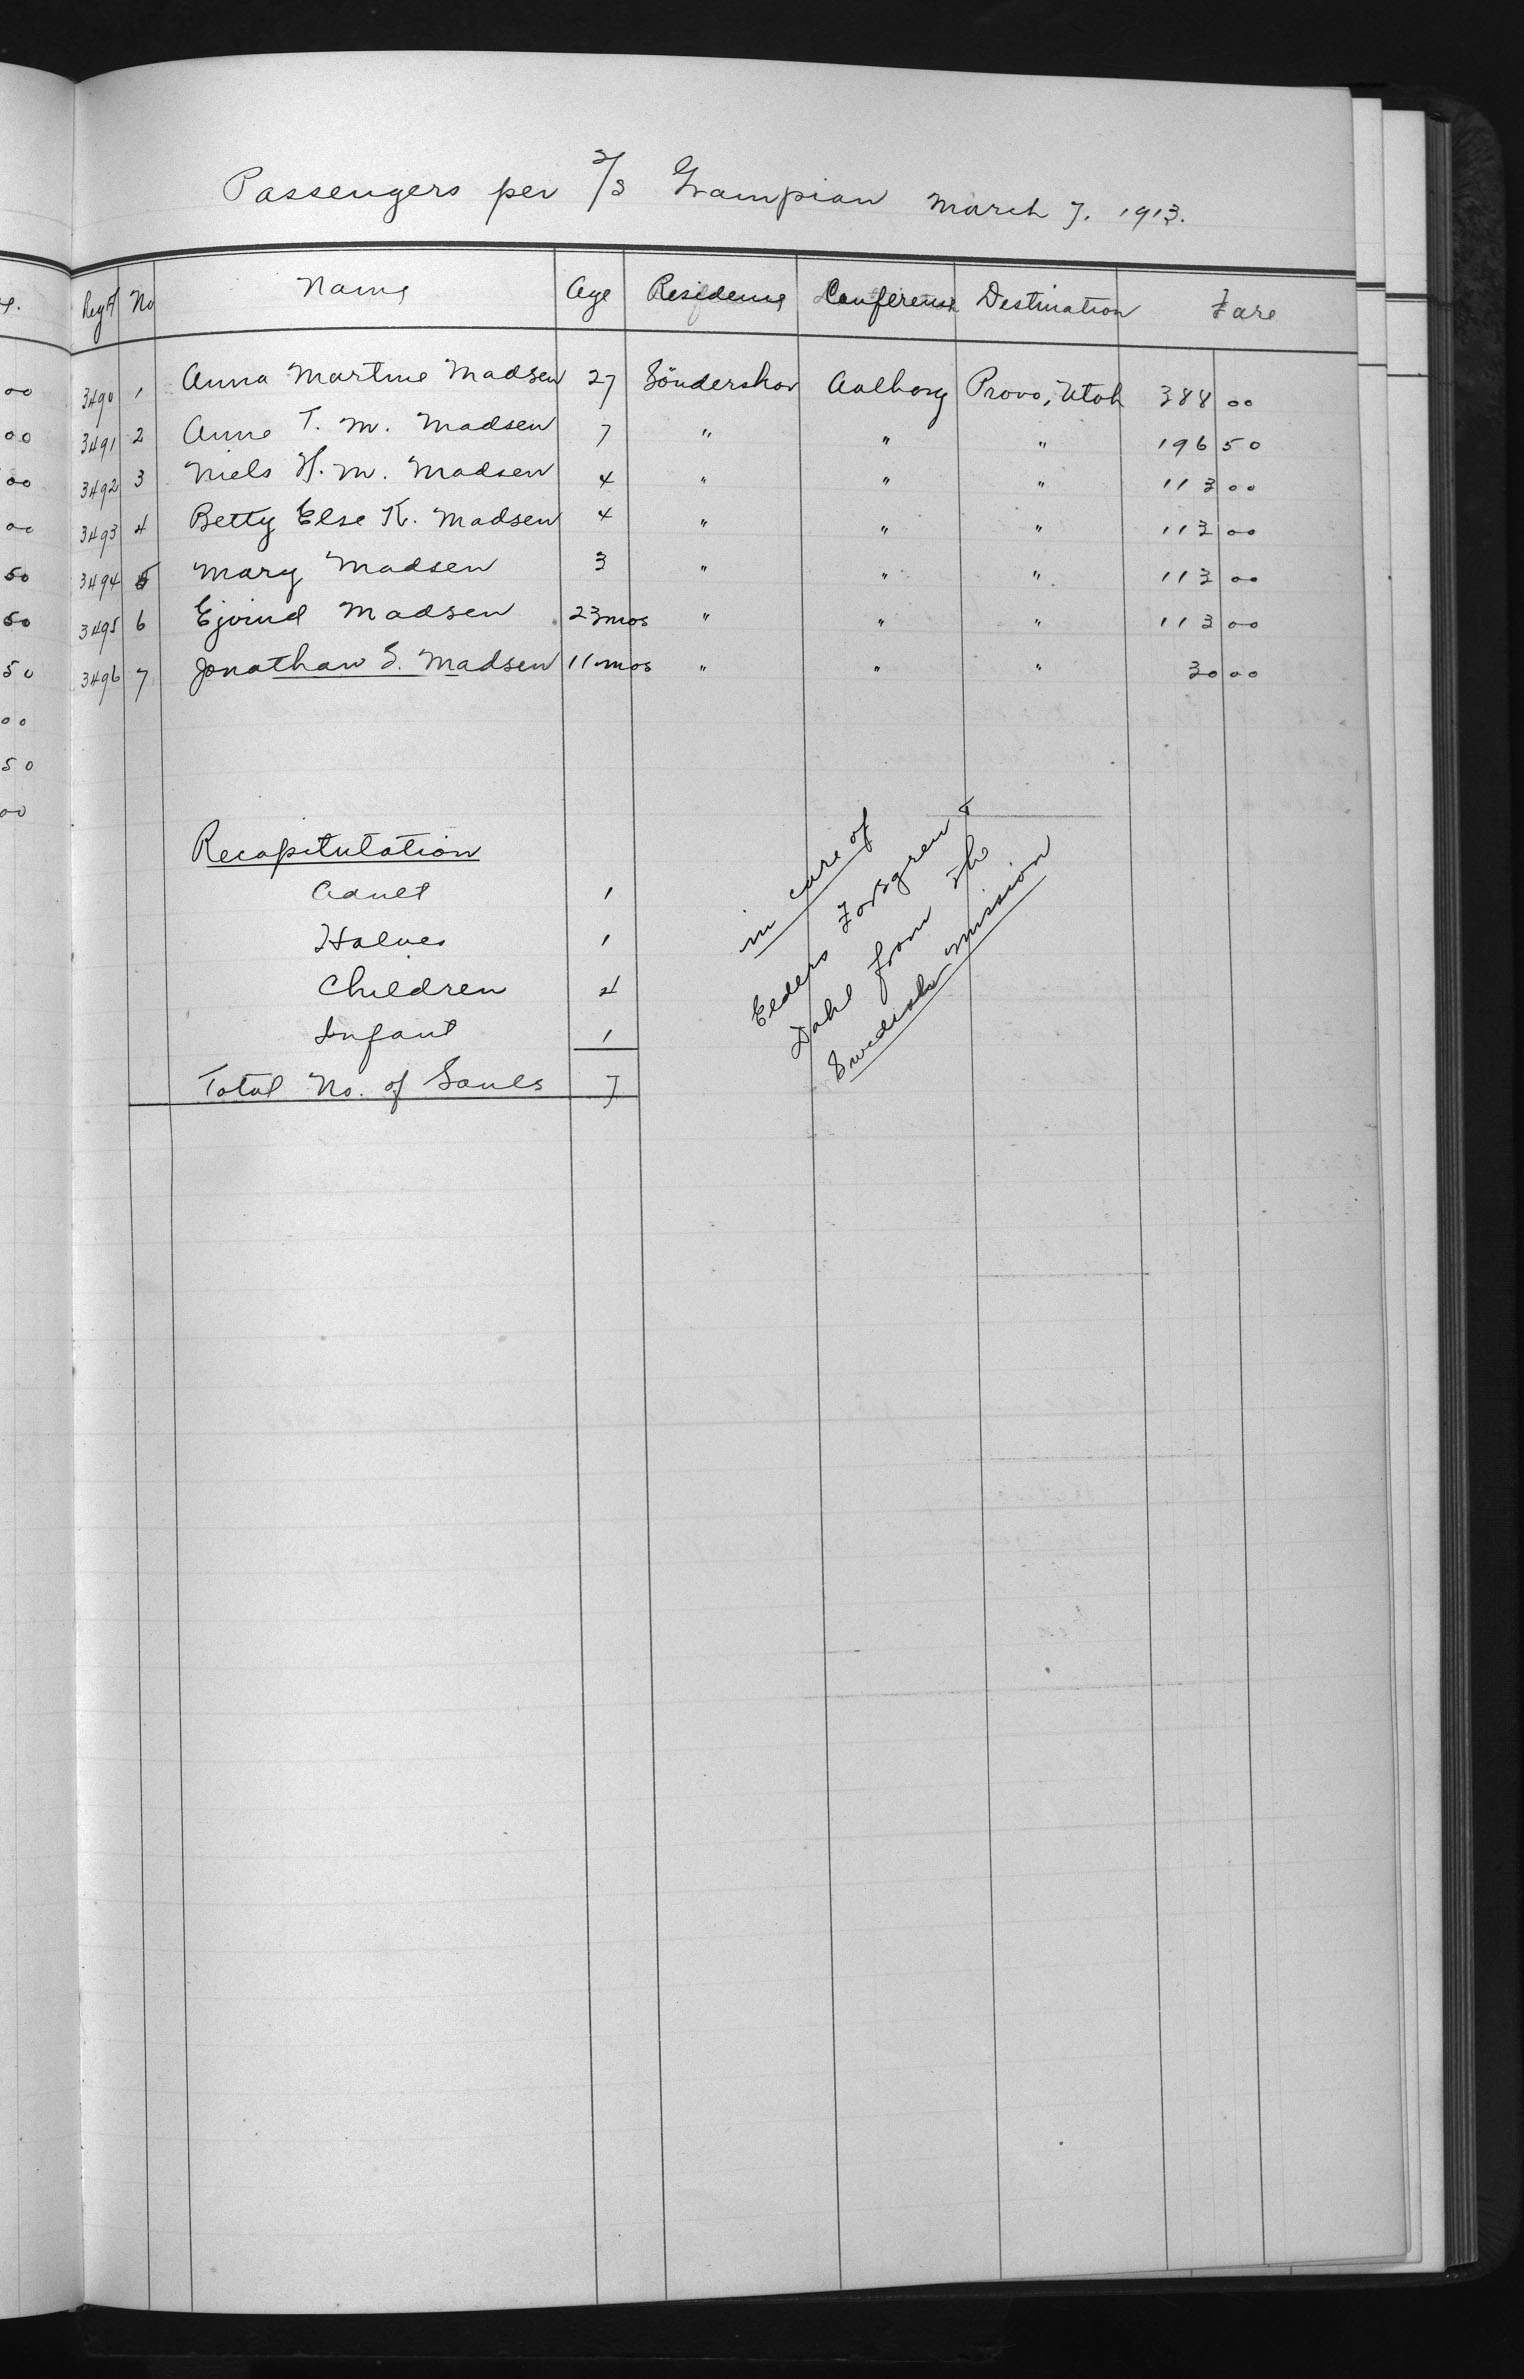 Passengers per S/S Grampian March 7. 1913.
Reg# No Name Age Residence Conference Destination Fare
3490 1 Anna Martine Madsen 27 Söndershov Aalborg Provo, Utah 388 00
3491 2 Anne T. M. Madsen 7 " " " 196 50
3492 3 Niels H. M. Madsen 4 " " " 113 00
3493 4 Betty Else K. Madsen 4 " " " 113 00
3494 5 Mary Madsen 3 " " " 113 00
3495 6 Ejvind Madsen 23 mos " " " 113 00
3496 7 Jonathan S. Madsen 11 mos " " " 30 00
Recapitulation
Adult 1
Halves 1
Children 4
Infant 1
Total No. of Souls 7
in care of
Elders Forsgren &
Dahl from the
Swedish mission
00
00
00
00
50
50
50
00
50
00